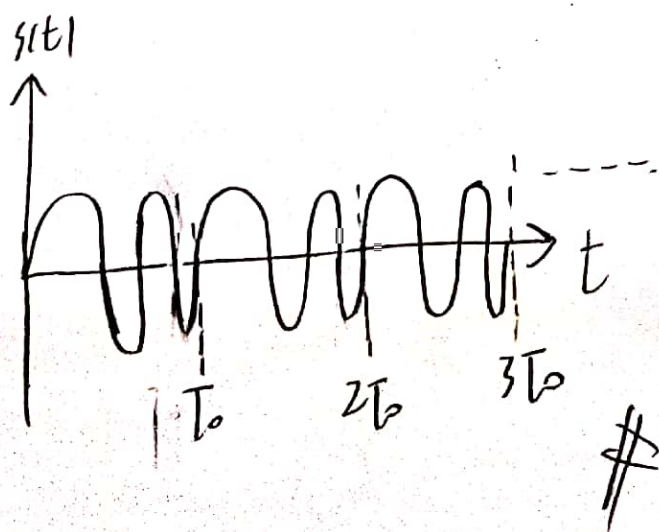 s(t)
t
T₀
2T₀
3T₀